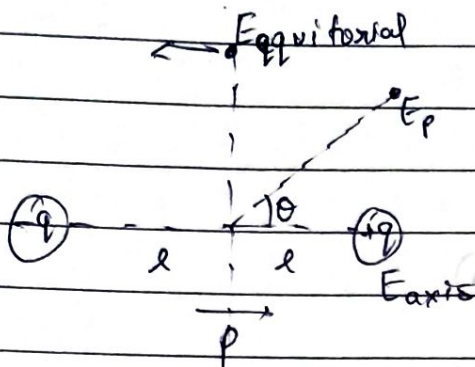 Eqquitorial
Ep
θ
-q
+q
l l
Eaxis
p